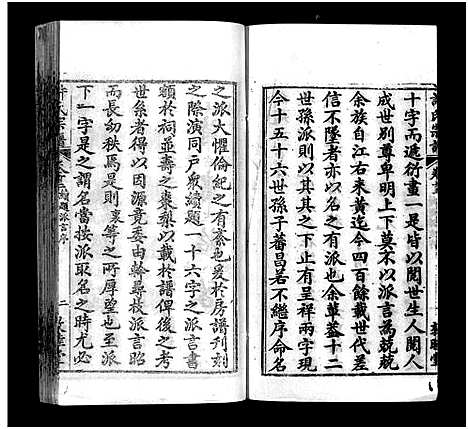 十字而遞衍畫一是皆以閱世生人閱人
成世別尊卑明上下莫不以派言為兢兢
余族自江右来黃迄今四百餘載世代差
信不墜者亦以名之有派也余輩蓋十二
世孫派則以其之下止有呈祥兩字現
今十五十六世孫子蕃昌若不繼序命名
之派大懼倫紀之有紊也爰於房譜刊刻
之際演同戶衆續題一十六字之派言書
額於祠並壽之棗梨以載於譜俾後之考
世系者得以因源竟委由幹尋枝派言昭
而長幼秩焉是則襄等之所厚望也至派
下一字是之謂名當按派取名之時尤必
許氏宗譜
續題派言序
二